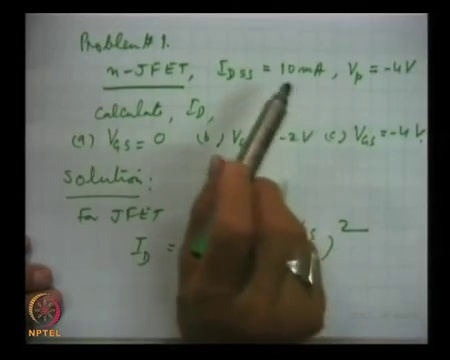 Problem # 1.
n-JFET, IDSS = 10mA, Vp = -4V
Calculate, ID,
(a) VGS = 0 (b) V -2V (c) VGS = -4V.
Solution:
For JFET
ID = s)2
NPTEL